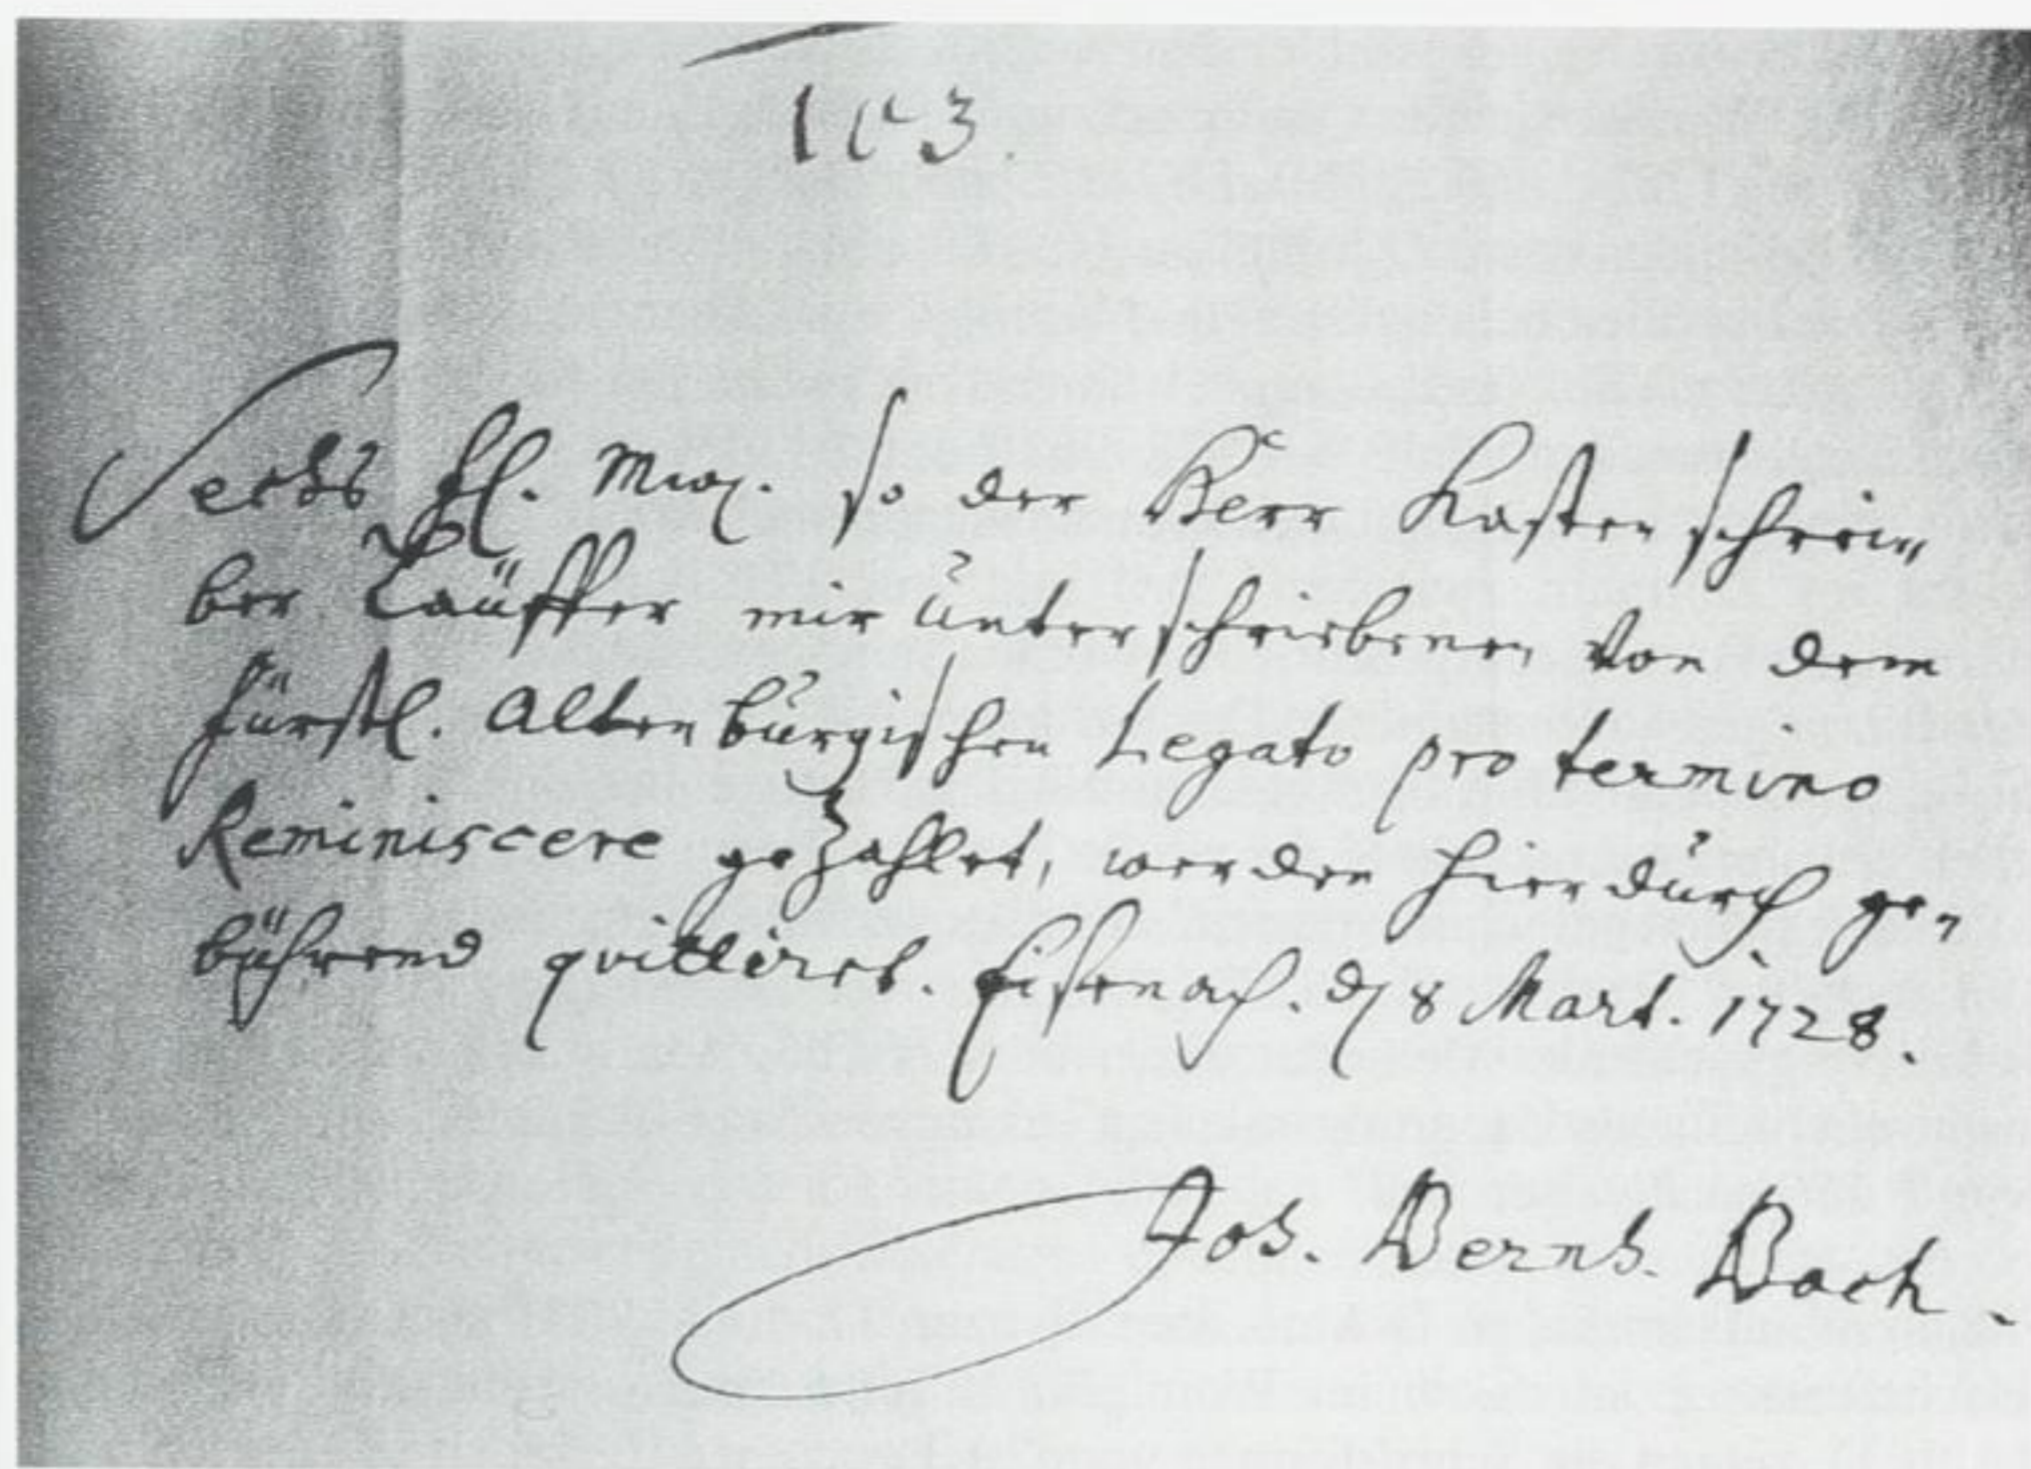 103.
Sechs fl. Mwz. so der Herr Kastenschrei-
ber Läuffer mir unterschriebenen von dem
Fürstl. Altenburgischen Legato pro termino
Reminiscere gezahlet, werden hierdurch ge-
bührend qvittiret. Eisenach. d 8 Mart. 1728.
Joh. Bernh. Bach.